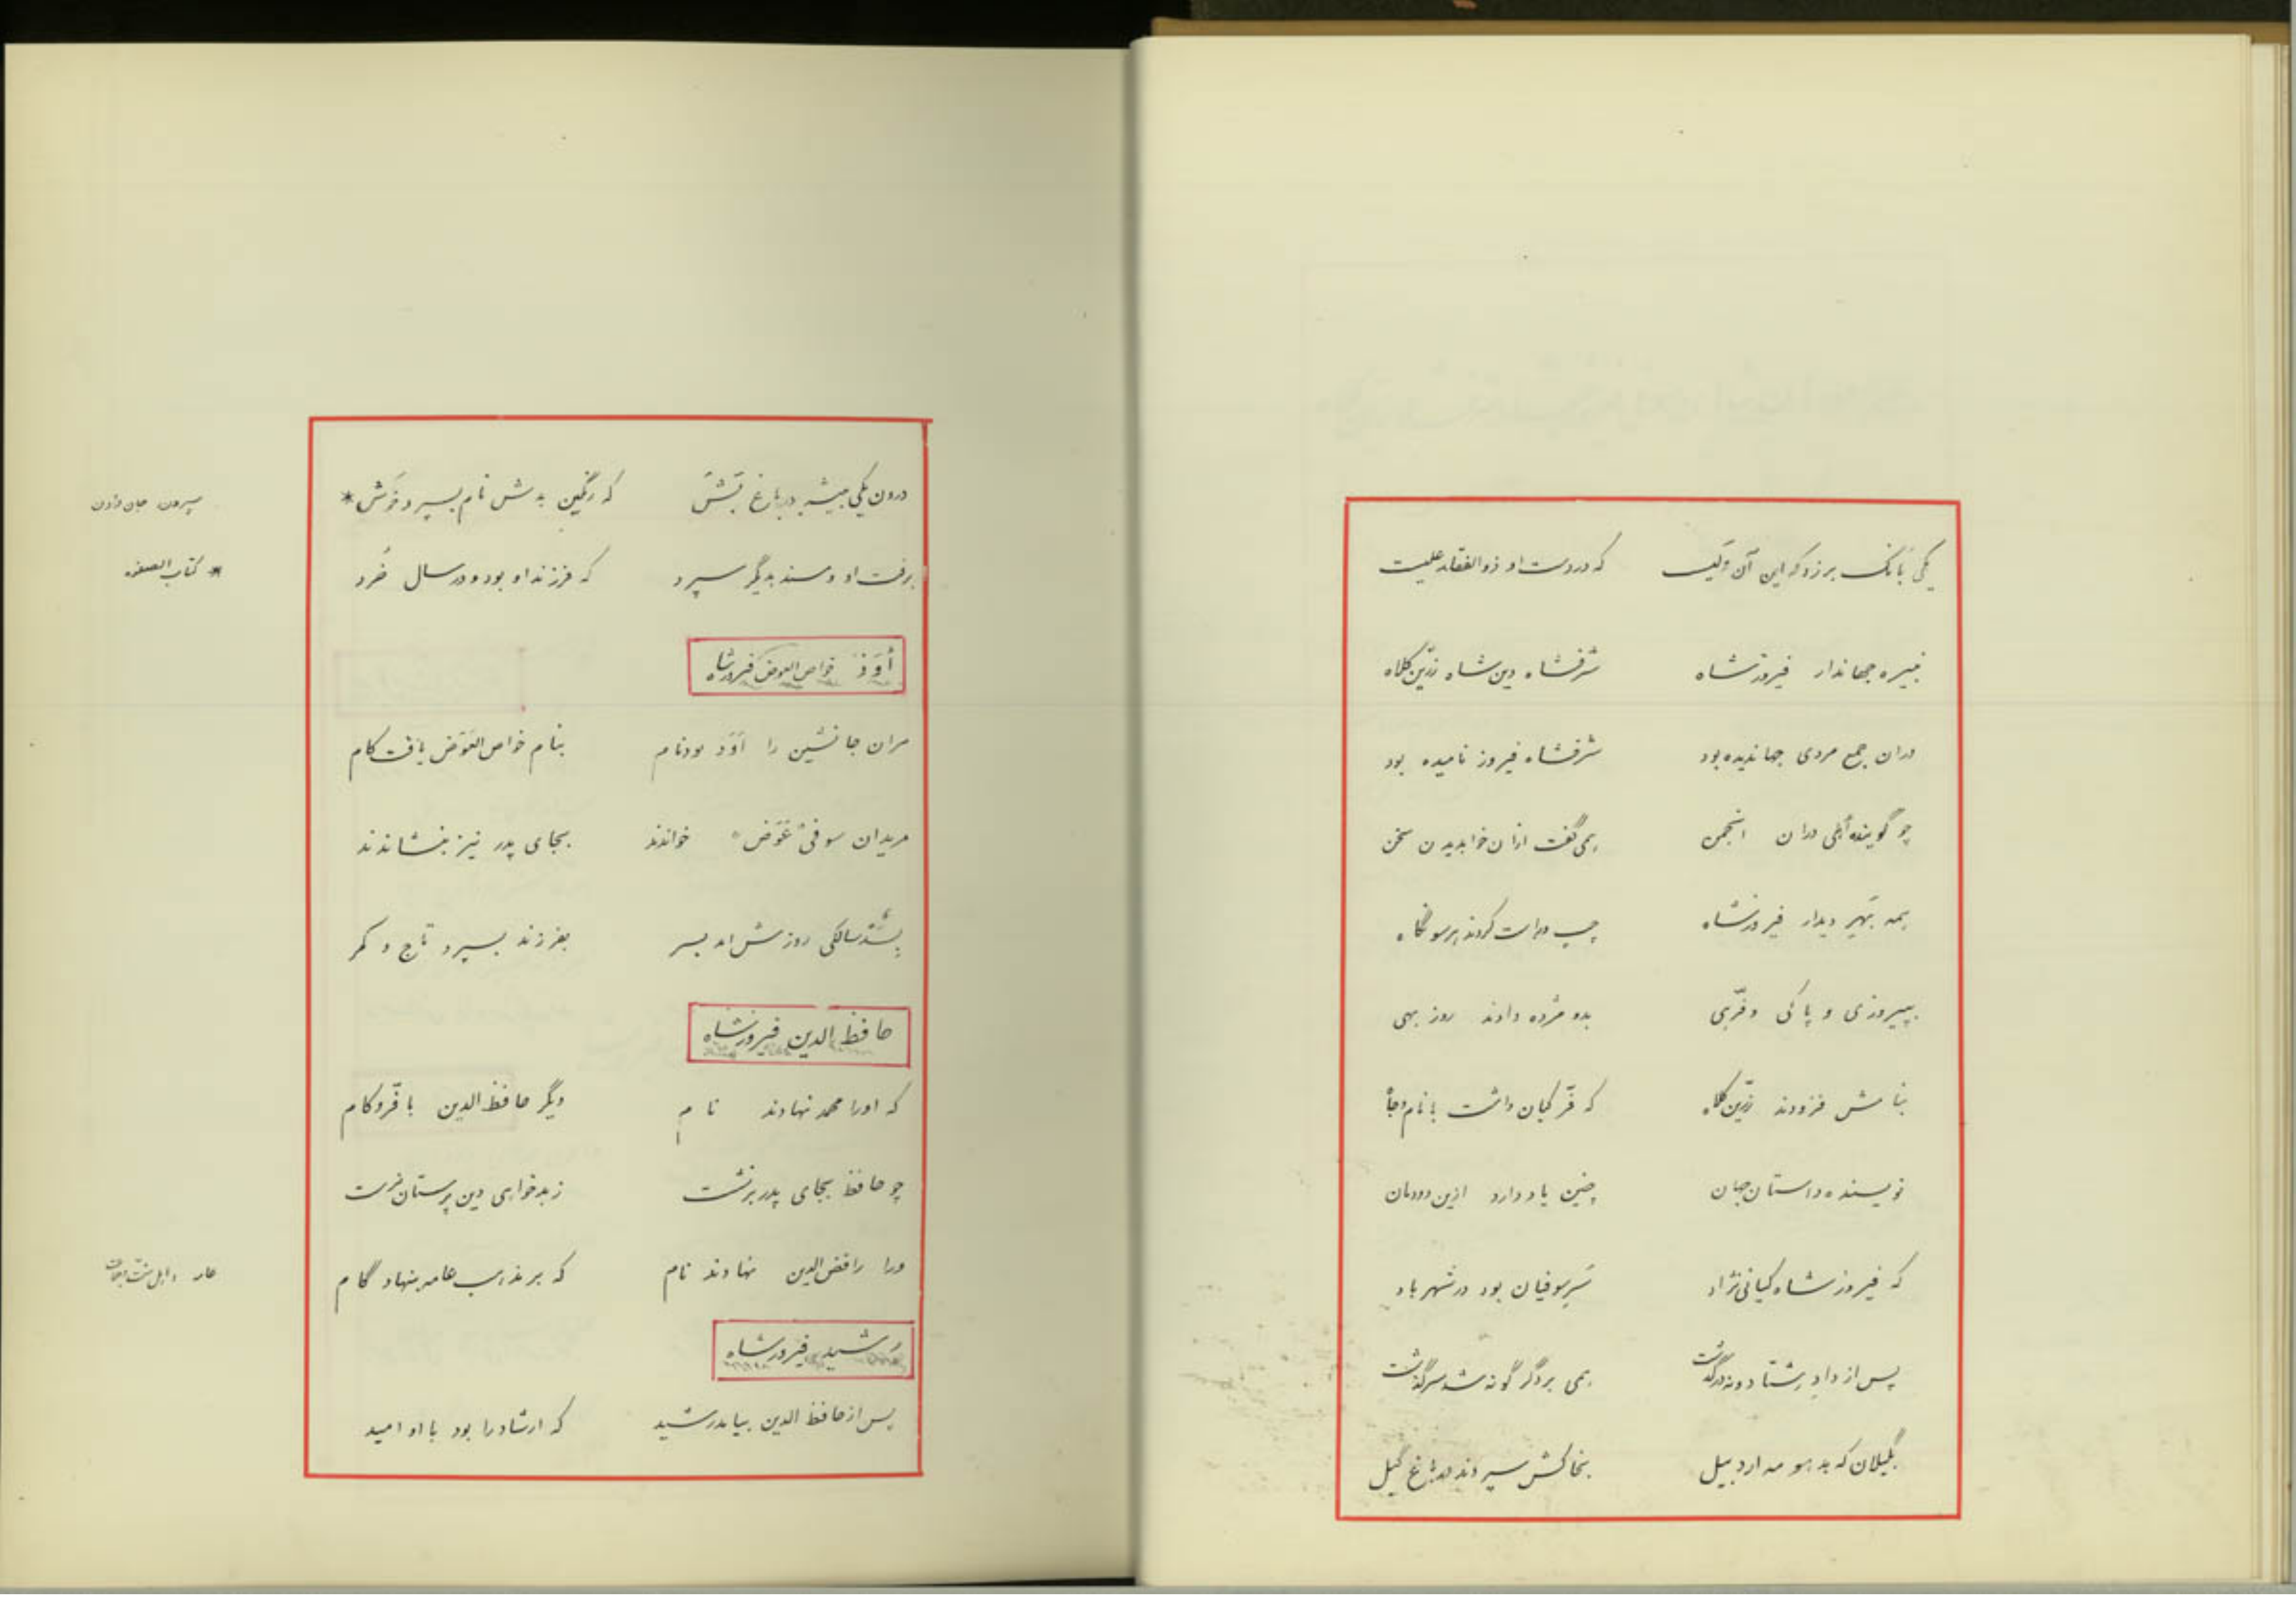 یکی بانک برزد که این آن ولیست که در دست او ذوالفقار علیست
نبیره جهاندار فیروزشاه شرفشاه دین شاه زرّین کلاه
دران جمع مردی جهاندیده بود شرفشاه فیروز نامیده بود
چو گوینده دران انجمن همی گفت ازان خوابدیدن سخن
همه بَهرِ دیدار فیروزشاه چپ و راست کردند هرسو نگاه
بپیروزی و پاکی و فرّهی بدو مژده دادند روز بهی
بنامش فزودند زرّین کلاه که فرّ کیان داشت با نام و جاه
نویسنده داستان جهان چنین یاد دارد ازین دودمان
که فیروزشاه کیانی نژاد سَرِ سوفیان بود در شهر باد
پس از داد هشتاد و نه درگذشت همی بر دگر گونه شد سرگذشت
بگیلان که بد اردبیل بخاکش سپردند در باغ گیل
درون یکی بیشه در باغ که رنگین بدش نام بسپرد خَوَش *
سپردن جان دادن
برفت او و مسند بدیگر سپرد که فرزند او بود و در سال خُرد
* کتاب الصفوه
اَوَذ خواص العوض فیروزشاه
مران جانشین را اَوَذ بود نام بنام خواص العَوَض یافت کام
مریدان سوفی عَوَض خواندند بجای پدر نیز بنشاندند
سالگی روزش آمد بسر بفرزند بسپرد تاج و کمر
حافظ الدین فیروزشاه
که اورا محمد نهادند نام دیگر حافظ الدین با فرّ و کام
چو حافظ بجای پدر برنشست ز بدخواهی دین پرستان نرست
ورا رافض الدین نهادند نام که بر مذهب عامه بنهاد گام
عامه اهل سنت
رشید فیروزشاه
پس از حافظ الدین بیامد رشید که ارشاد را بود با او امید